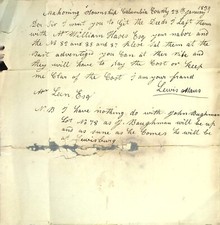 Mahoning Township Columbia County 28th January 1830
Der Sir I want you to Git the Deeds I Left them
with Mr William Hases Esq your nabor and
the No 85 and 83 and 87 Pleas Sel them at the
Bast advantige you Can at ther rite and
they will have to pay the Cost or Keep
me Clar of the Cost I am your frend
Lewis
Mr Leon Esq
N B I have nothing do with John Bughman
Lot No 78 as J. Baughman will be up
and as sune as he Comes he will be
at Lewisburg